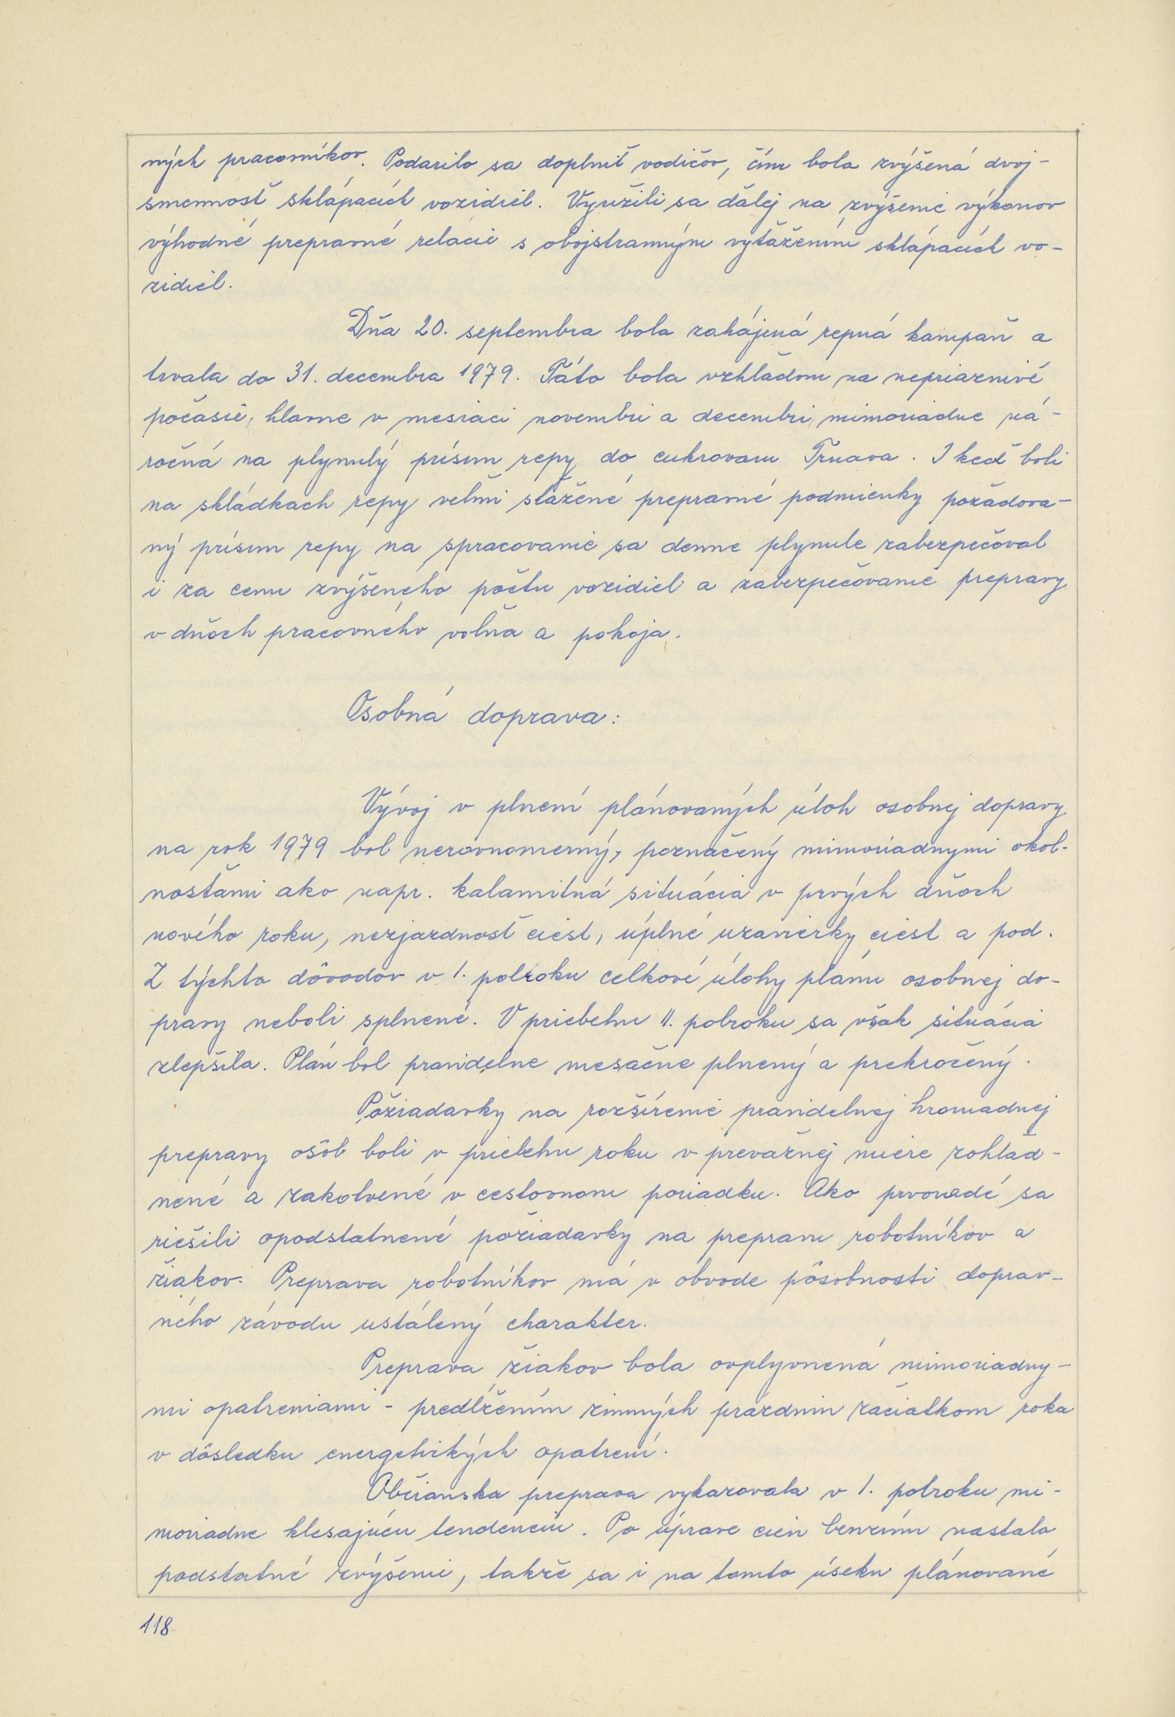 ných pracovníkov. Podarilo sa doplniť vodičov, čím bola zvýšená dvoj-
smennosť sklápacích vozidiel. Využili sa ďalej na zvýšenie výkonov
výhodné prepravné relácie s obojstranným vyťažením sklápacích vo-
zidiel.
Dňa 20. septembra bola zahájená repná kampaň a
trvala do 31. decembra 1979. Táto bola vzhľadom na nepriaznivé
počasie, hlavne v mesiaci novembri a decembri, mimoriadne ná-
ročná na plynulý prísun repy do cukrovaru Trnava. I keď boli
na skládkach repy veľmi sťažené prepravné podmienky požadova-
ný prísun repy na spracovanie sa denne plynule zabezpečoval
i za cenu zvýšeného počtu vozidiel a zabezpečovanie prepravy
v dňoch pracovného voľna a pokoja.
Osobná doprava:
Vývoj v plnení plánovaných úloh osobnej dopravy
na rok 1979 bol nerovnomerný, poznačený mimoriadnymi okol-
nosťami ako napr. kalamitná situácia v prvých dňoch
nového roku, nezjazdnosť ciest, úplné uzavierky ciest a pod.
Z týchto dôvodov v I. polroku celkové úlohy plánu osobnej do-
pravy neboli splnené. V priebehu II. polroku sa však situácia
zlepšila. Plán bol pravidelne mesačne plnený a prekročený.
Požiadavky na rozšírenie pravidelnej hromadnej
prepravy osôb boli v priebehu roku v prevažnej miere zohľad-
nené a zakotvené v cestovnom poriadku. Ako prvoradé sa
riešili opodstatnené požiadavky na prepravu robotníkov a
žiakov. Preprava robotníkov má v obvode pôsobnosti doprav-
ného závodu ustálený charakter.
Preprava žiakov bola ovplyvnená mimoriadny-
mi opatreniami - predĺžením zimných prázdnin začiatkom roka
v dôsledku energetických opatrení.
Občianska preprava vykazovala v I. polroku mi-
moriadne klesajúcu tendenciu. Po úprave cien benzínu nastalo
podstatné zvýšenie, takže sa i na tomto úseku plánované
118